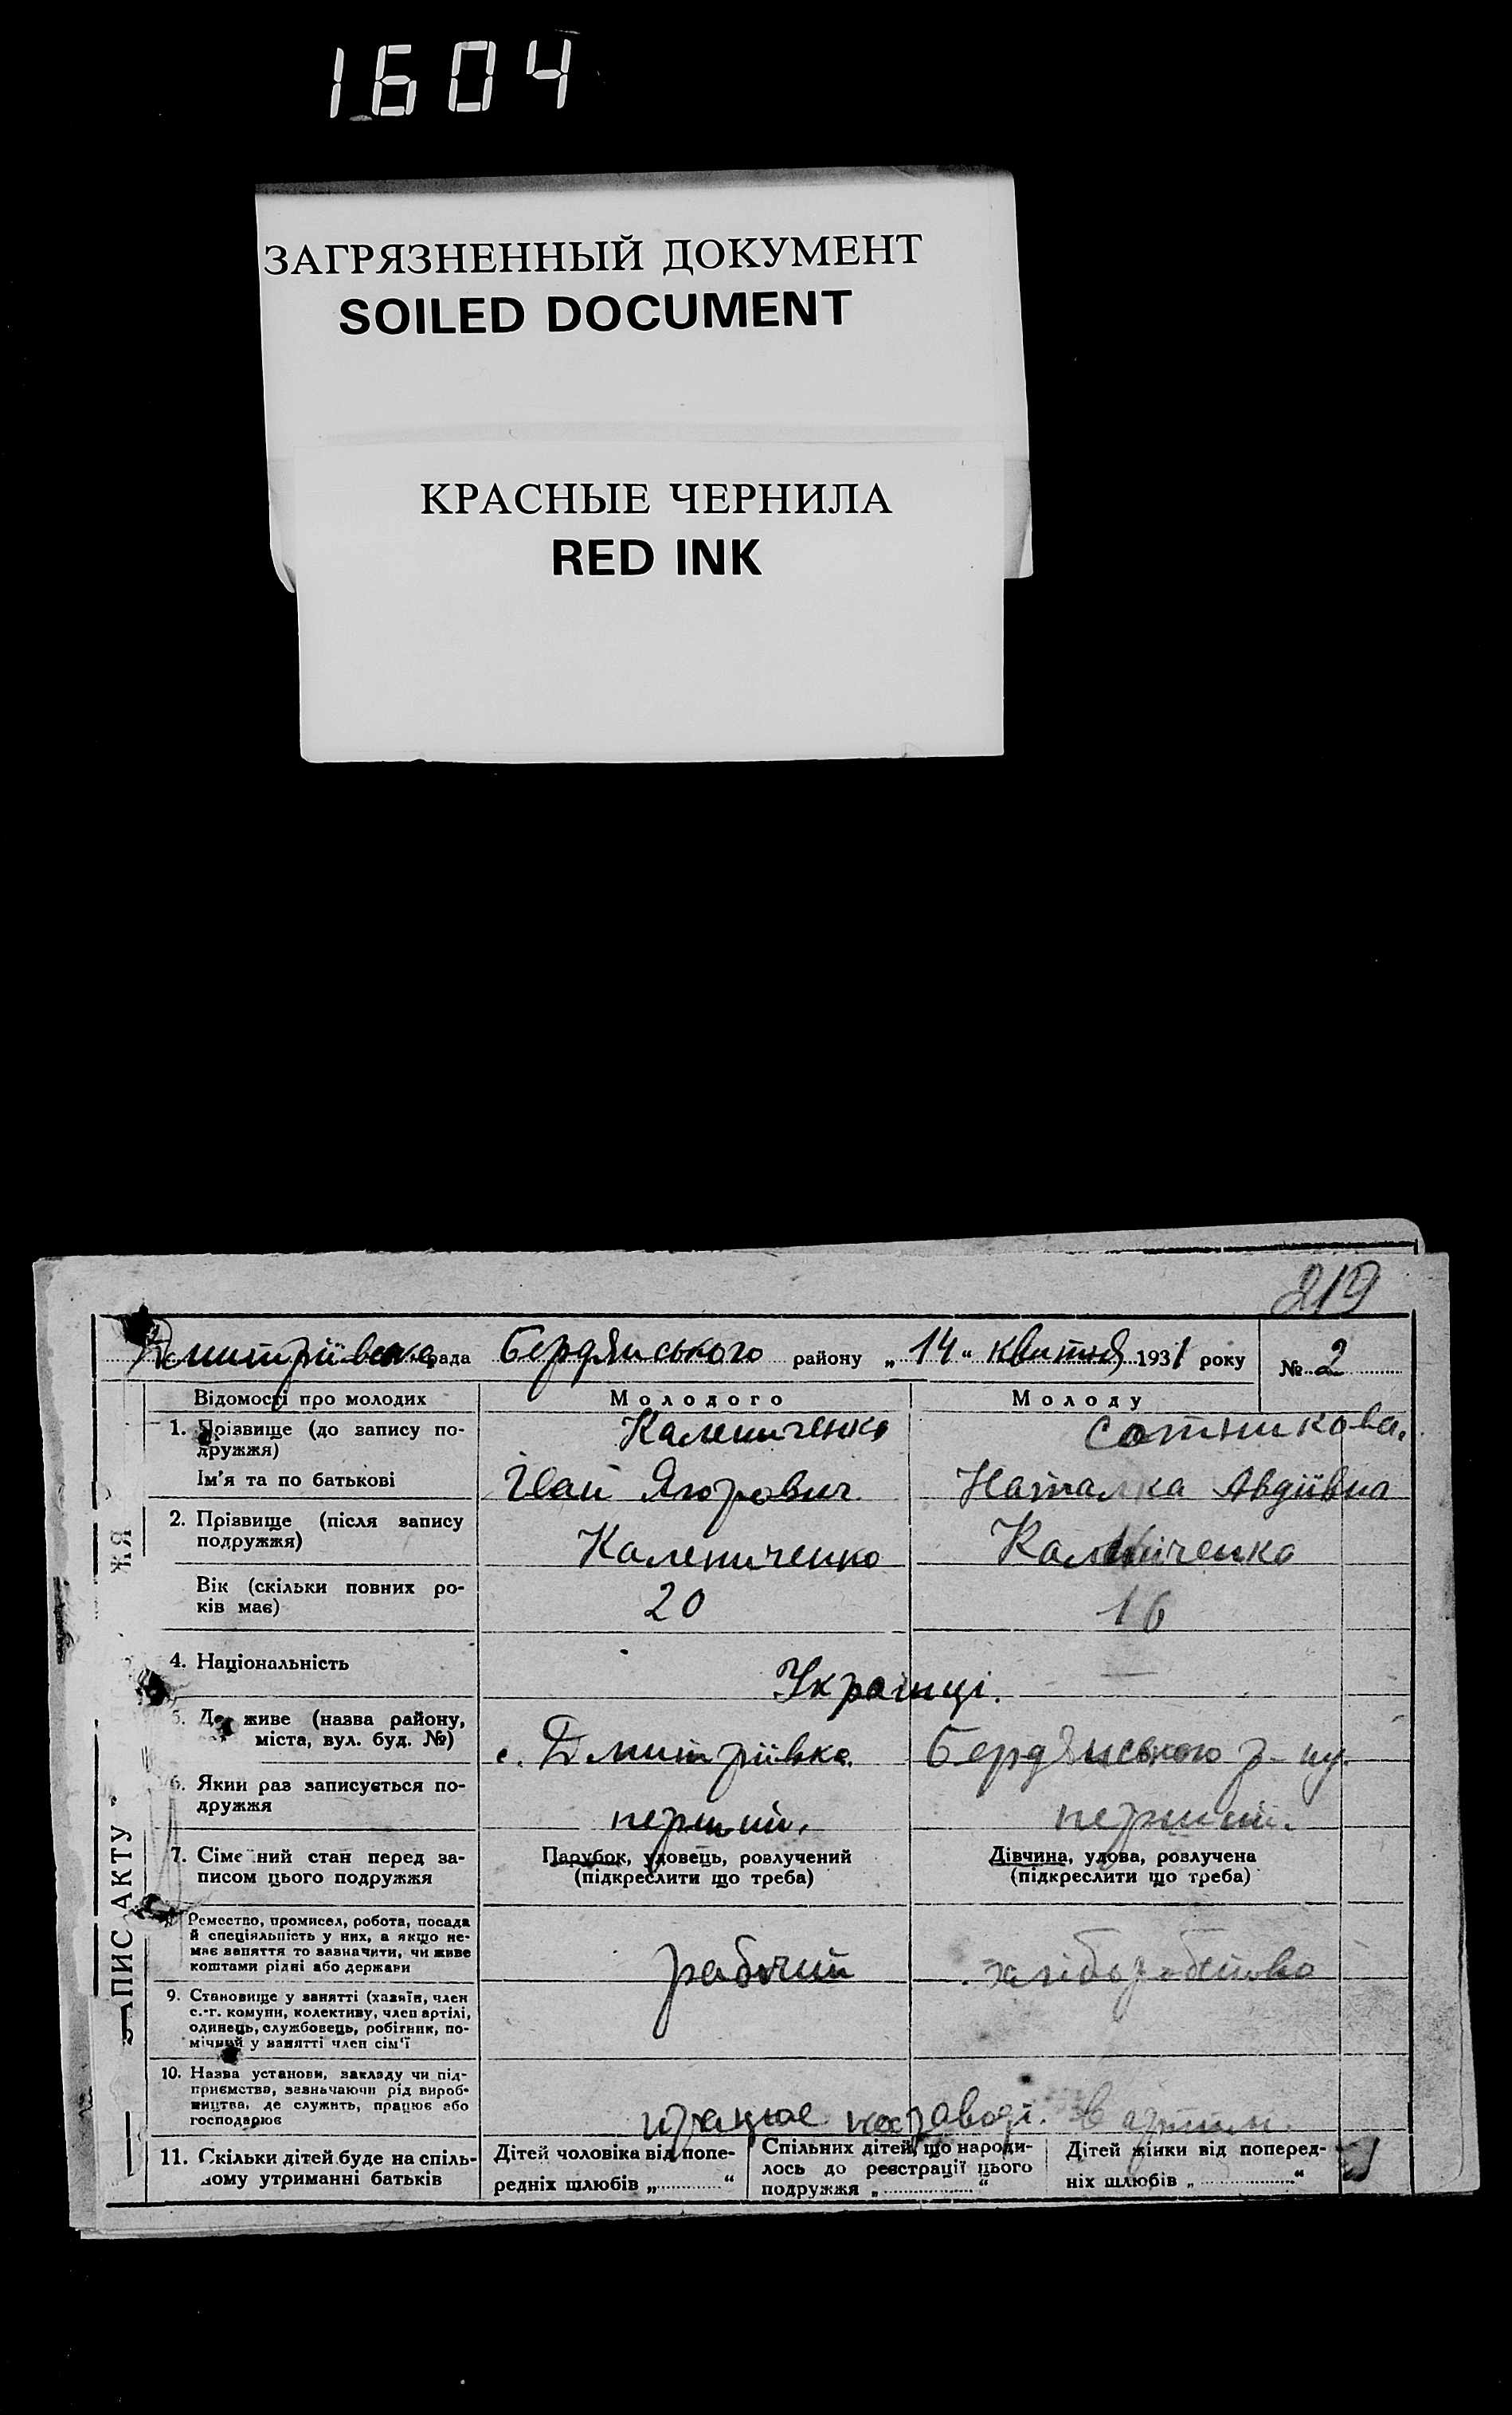 1604
ЗАГРЯЗНЕННЫЙ ДОКУМЕНТ
SOILED DOCUMENT
КРАСНЫЕ ЧЕРНИЛА
RED INK
219
Дмитріївська рада Бердянського району „14“ квітня 1931 року № 2
Відомості про молодих Молодого Молоду
1. Прізвище (до запису по-
дружжя) Калениченко Сотникова.
Ім'я та по батькові Іван Ягорович Наталка Авдіївна
2. Прізвище (після запису
подружжя) Калениченко Калениченко
Вік (скільки повних ро-
ків має) 20 16
4. Національність Українці.
5. Де живе (назва району,
міста, вул. буд. №) с. Дмитріївка. Бердянського р-ну.
6. Який раз записується по-
дружжя перший. перший.
7. Сімейний стан перед за-
писом цього подружжя
Парубок, удовець, розлучений
(підкреслити що треба)
Дівчина, удова, розлучена
(підкреслити що треба)
Ремество, промисел, робота, посада
й спеціяльність у них, а якщо не-
має заняття то зазначити, чи живе
коштами рідні або держави
рабочий хліборобство
9. Становище у занятті (хазяїн, член
с.-г. комуни, колективу, член артілі,
одинець, службовець, робітник, по-
мічний у занятті член сім'ї
10. Назва установи, закладу чи під-
приємства, зазначаючи рід вироб-
ництва, де служить, працює або
господарює
працює на заводі. в артілі.
11. Скільки дітей буде на спіль-
ному утриманні батьків
Дітей чоловіка від попе-
редніх шлюбів „ “
Спільних дітей, що народи-
лось до реєстрації цього
подружжя „ “
Дітей жінки від поперед-
ніх шлюбів „ “
ПИС АКТУ
ЖЯ